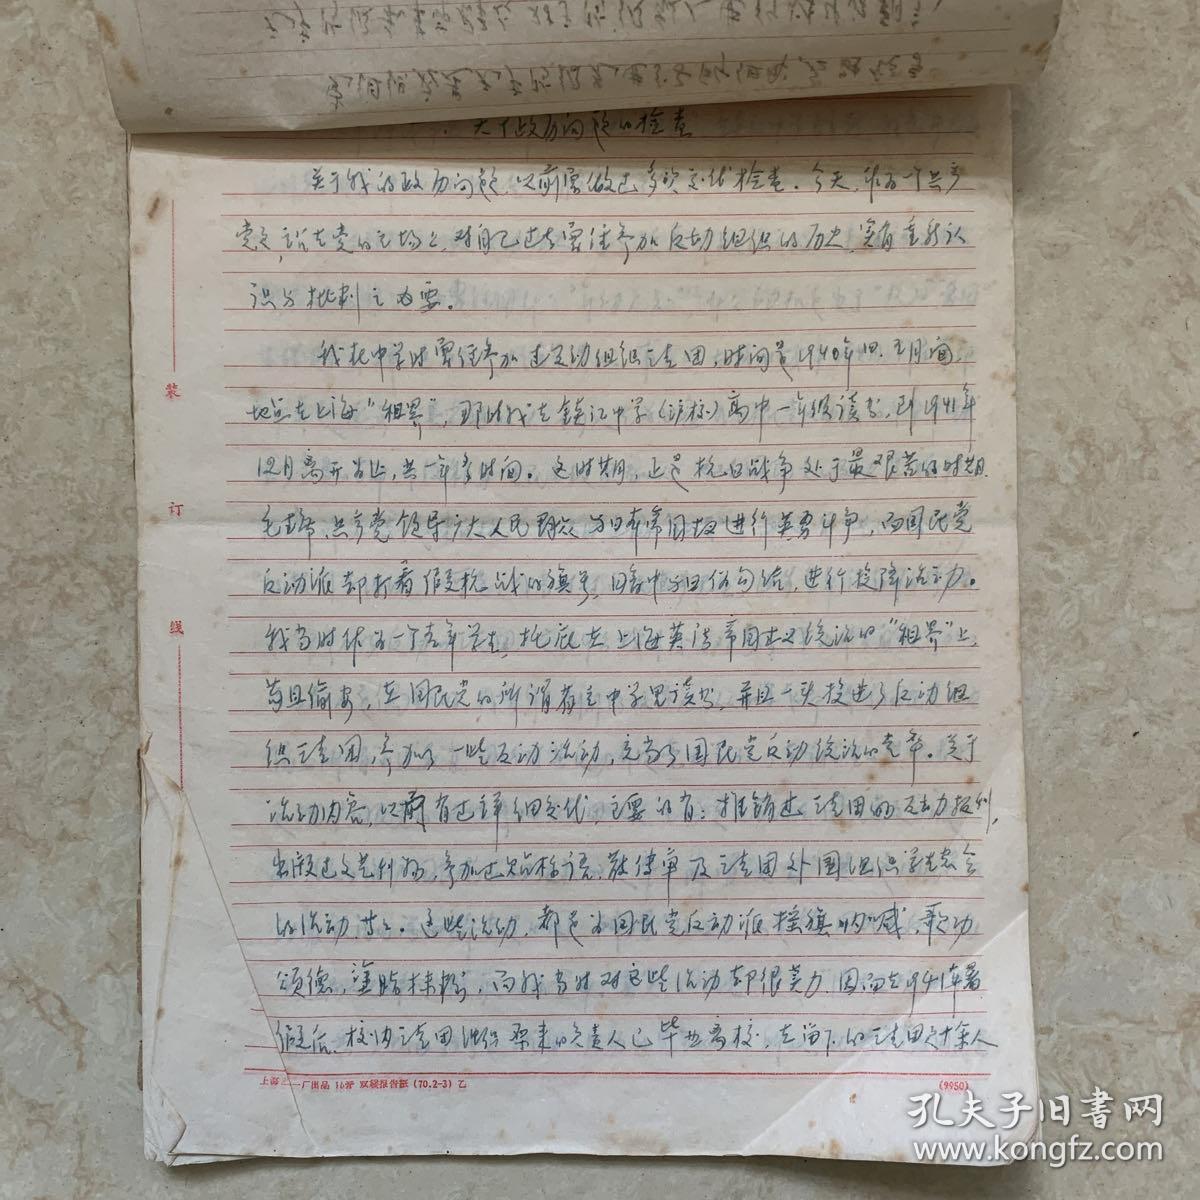 关于政历问题的检查
关于我的政历问题，以前曾做过多次交代检查。今天，作为一个共产
党员，站在党的立场上，对自己过去曾经参加反动组织的历史，实有重新认
识与批判之必要。
我在中学时曾经参加过反动组织三青团，时间是1940年四、五月间，
地点在上海“租界”，那时我在镇江中学（沪校）高中一年级读书，到1941年
12月离开为止，共一年多时间。这时期，正是抗日战争处于最艰苦的时期，
毛主席、共产党领导广大人民群众与日本帝国主义进行英勇斗争，而国民党
反动派却打着假抗战的旗号，暗中与日伪勾结，进行投降活动。
我当时作为一个青年学生，托庇在上海英法帝国主义统治的“租界”上，
苟且偷安，在国民党的所谓省立中学里读书，并且一头投进了反动组
织三青团，参加了一些反动活动，充当了国民党反动统治的走卒。关于
活动内容，以前有过详细交代，主要的有：推销过三青团的反动报刊，
出版过文艺刊物，参加过贴标语、散传单及三青团外围组织学生会
的活动，等等。这些活动，都是为国民党反动派摇旗呐喊，歌功
颂德，涂脂抹粉，而我当时对这些活动却很卖力，因而在1941年暑
假后，校内三青团组织原来的负责人已毕业离校，在留下的三青团员十余人
装
订
线
上海 一厂出品 16开 双线报告纸 (70.2-3) 乙
(9950)
孔夫子旧书网
www.kongfz.com